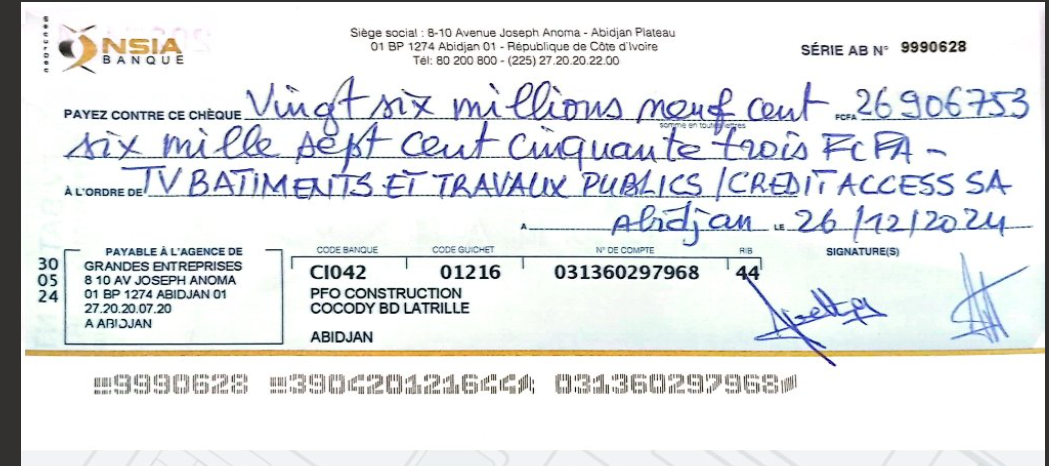 securcheq
NSIA
BANQUE
Siège social : 8-10 Avenue Joseph Anoma - Abidjan Plateau
01 BP 1274 Abidjan 01 - République de Côte d'Ivoire
Tél: 80 200 800 - (225) 27.20.20.22.00
SÉRIE AB N° 9990628
PAYEZ CONTRE CE CHÈQUE Vingt six millions neuf cent FCFA 26906753
somme en toutes lettres
six mille sept cent cinquante trois FCFA -
À L'ORDRE DE TV BATIMENTS ET TRAVAUX PUBLICS / CREDIT ACCESS SA
A Abidjan LE 26/12/2024
30
05
24
PAYABLE À L'AGENCE DE
GRANDES ENTREPRISES
8 10 AV JOSEPH ANOMA
01 BP 1274 ABIDJAN 01
27.20.20.07.20
A ABIDJAN
CODE BANQUE CODE GUICHET N° DE COMPTE RIB
CI042 01216 031360297968 44
PFO CONSTRUCTION
COCODY BD LATRILLE
ABIDJAN
SIGNATURE(S)
9990628 390420121644 031360297968